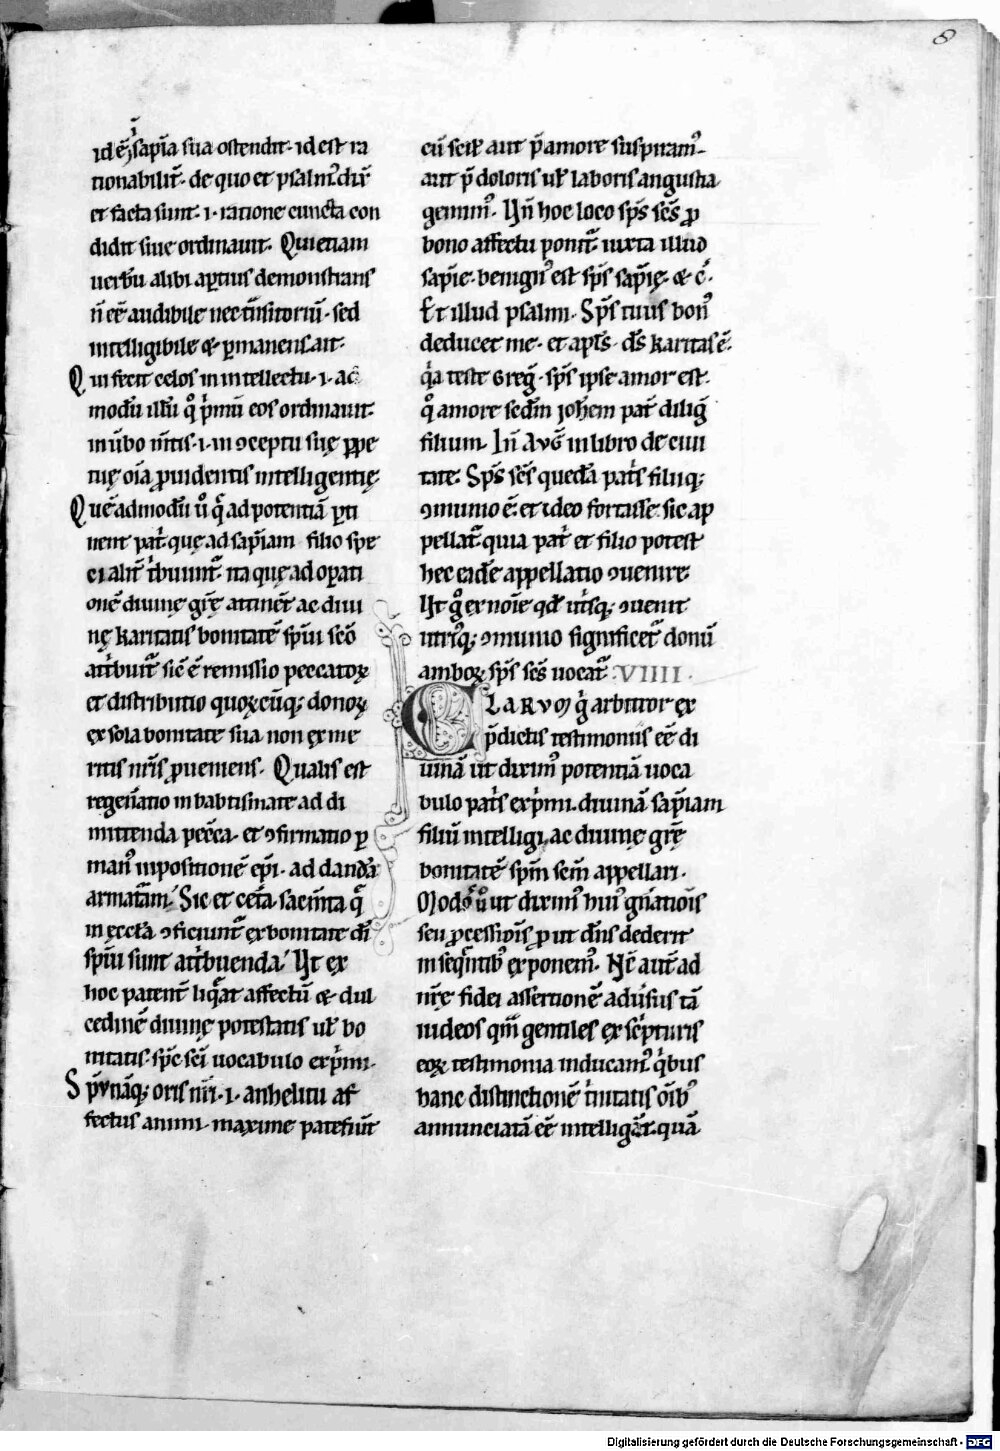 8
id ē, sapīa sua ostendit· id est ra
tionabilit̄· de quo et psalm̄ dix̄
et facta sunt· i· ratione cuncta con
didit siue ordinauit· Qui etiam
uerbū alibi ap̱tius demonstrans
n̄ eē audibile nec t̄nsitoriū· sed
intelligibile & p̱manens ait·
Qui fecit celos in intellectu· i· ac̄
modū illū q̊ p̄mū eos ordinauit·
in ūbo m̄tis· i· in ꝯceptu suę ꝑpe
tuę oīa ꝓuidentis intelligentię·
Quēadmodū ū q̄ ad potentiā ꝑti
nent pat̄ quę ad sapīam filio spe
cialit̄ t̄buunt̄ ita quę ad oꝑati
onē diuinę gr̄ę attinēt ac diui
nę karitatis bonitatē spiū scō
att̄buit̄ sic̄ ē remissio peccatoꝝ
et distributio quoꝝcūq; donoꝝ
ex sola bonitate sua non ex me
ritis nr̄is ꝓueniens· Qualis est
regen̄atio in babtismate ad di
mittenda pecc̄a· et ꝯfirmatio ꝑ
manꝰ inpositionē ep̄i· ad dandā
armat̄am· Sic et cet̄a sacm̄ta q̄
in ęccla ꝯficiunt̄ ex bonitate dī
spiū sunt att̄buenda· Ut ex
hoc patent̄ liq̄at affectū & dul
cedinē diuinę potestatis ul̄ bo
nitatis· spc̄ sci uocabulo exp̄mi·
Spū nāq; oris nr̄i· i· anhelitu af
fectus animi· maxime patefiūt
cū scił aut p̄ amore suspiramꝰ·
aut p̄ doloris ul̄ laboris angustia
gemimꝰ· Un̄ hoc loco sps̄ scs̄ ꝓ
bono affectu ponit̄ iuxta illud
sapīe· benignꝰ est sps̄ sapīę· & c̄·
Et illud psalmi· Sps̄ tuus bonꝰ
deducet me· et apls̄· ds̄ karitas ē·
q̄a teste Greḡ· sps̄ ipse amor est·
q̊ amore sec̄dm joh̄em pat̄ diliḡ
filium· Un̄ Auḡ in libro de ciui
tate· Sps̄ scs̄ quedā pat̄s filiiq;
ꝯmunio ē· et ideo fortasse· sic ap
pellat̄ quia pat̄ et filio potest
hec eadē appellatio ꝯuenire·
Ut g̊ ex noīe qd̄ ut̄isq; ꝯuenit
utriq; ꝯmunio significet̄ donū
amboꝝ sps̄ scs̄ uocat̄· VIIII·
CLARVM q̄ arbitror ex
p̄dictis testimoniis eē di
uinā ut diximꝰ potentiā uoca
bulo pat̄s exp̄mi· diuinā sapīam
filiū intelligi, ac diuinę gr̄ę
bonitatē spm̄ scm̄ appellari·
Modꝰ ū ut diximꝰ huiꝰ gn̄atiōis
seu ꝓcessiōis ꝓ ut dn̄s dederit
in seq̄ntibꝰ exponemꝰ· Nc̄ aut̄ ad
nr̄ę fidei assertionē adūsus tā
iudeos qm̄ gentiles ex sc̄pturis
eoꝝ testimonia inducamꝰ q̄bus
hanc distinctionē t̄nitatis oīb
annunciatā eē intelligāt· quā
Digitalisierung gefördert durch die Deutsche Forschungsgemeinschaft - DFG